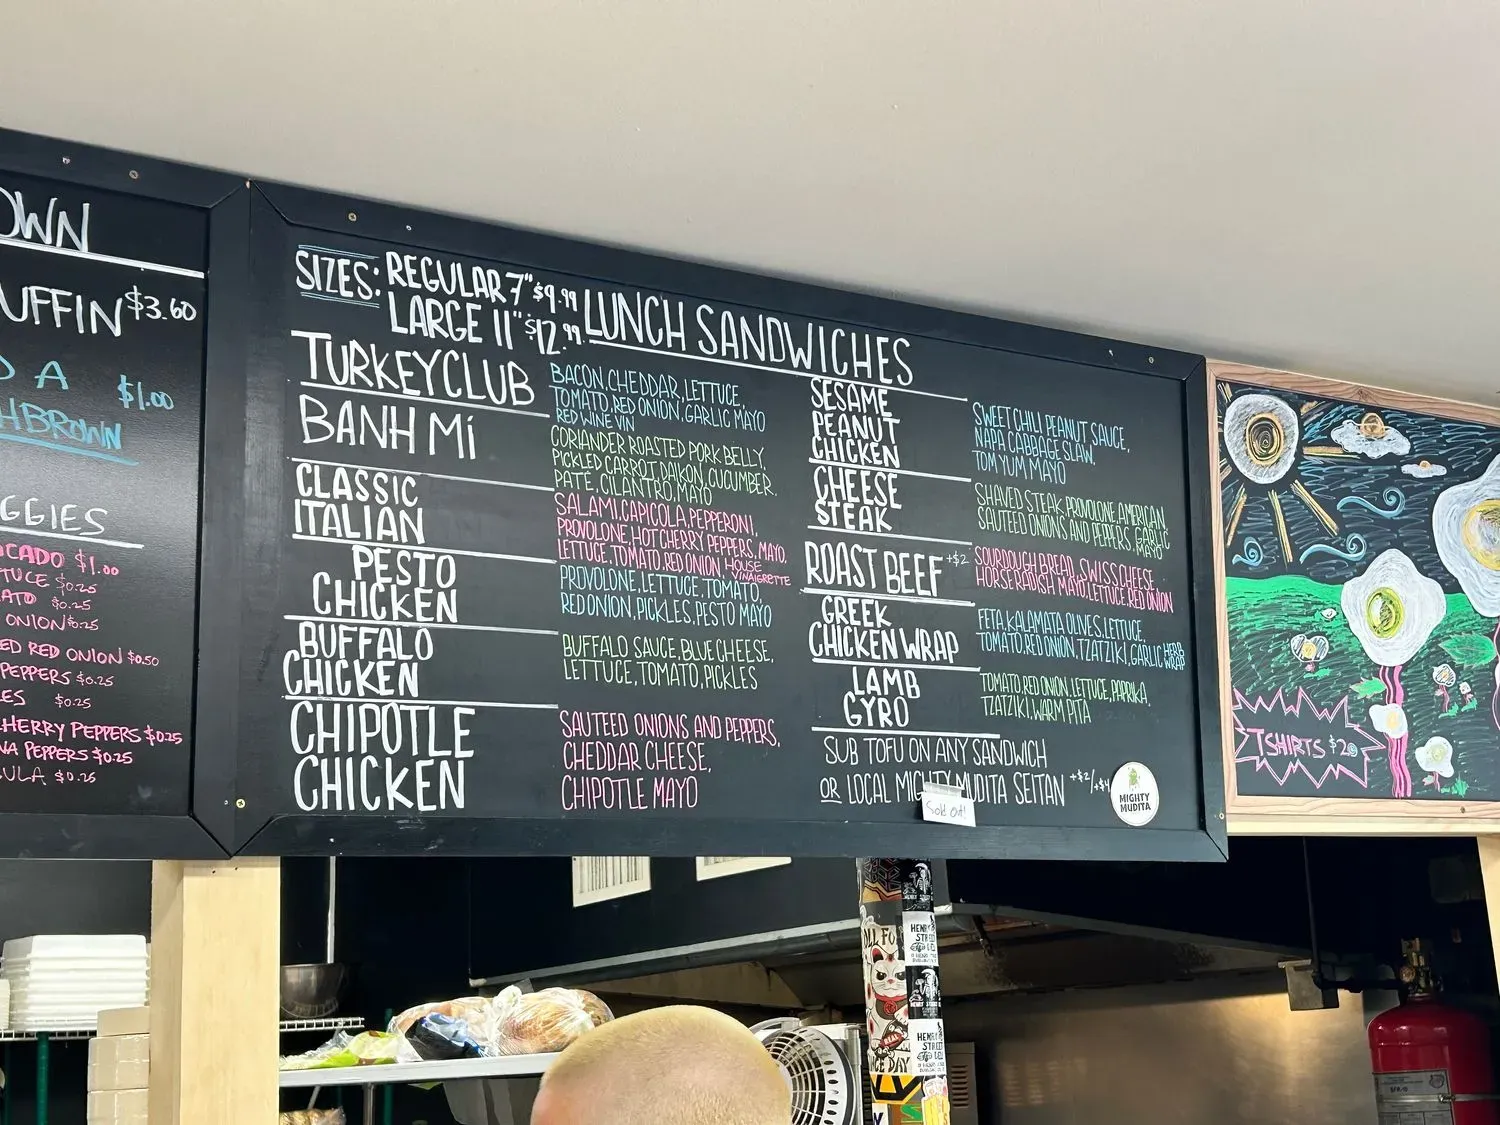 OWN
UFFIN $3.60
D A $1.00
HBROWN
GGIES
OCADO $1.00
TTUCE $0.25
ATO $0.25
ONION $0.25
ED RED ONION $0.50
PEPPERS $0.25
LES $0.25
HERRY PEPPERS $0.25
NA PEPPERS $0.25
ULA $0.25
SIZES: REGULAR 7" $9.99
LARGE 11" $12.99
LUNCH SANDWICHES
TURKEY CLUB
BACON, CHEDDAR, LETTUCE,
TOMATO, RED ONION, GARLIC MAYO
RED WINE VIN
BANH Mi
CORIANDER ROASTED PORK BELLY,
PICKLED CARROT DAIKON, CUCUMBER.
PATE, CILANTRO, MAYO
CLASSIC
ITALIAN
SALAMI, CAPICOLA, PEPPERONI,
PROVOLONE, HOT CHERRY PEPPERS, MAYO,
LETTUCE, TOMATO, RED ONION HOUSE
VINAIGRETTE
PESTO
CHICKEN
PROVOLONE, LETTUCE, TOMATO,
RED ONION, PICKLES, PESTO MAYO
BUFFALO
CHICKEN
BUFFALO SAUCE, BLUE CHEESE,
LETTUCE, TOMATO, PICKLES
CHIPOTLE
CHICKEN
SAUTEED ONIONS AND PEPPERS,
CHEDDAR CHEESE,
CHIPOTLE MAYO
SESAME
PEANUT
CHICKEN
SWEET CHILI PEANUT SAUCE,
NAPA CABBAGE SLAW,
TOM YUM MAYO
CHEESE
STEAK
SHAVED STEAK PROVOLONE, AMERICAN,
SAUTEED ONIONS AND PEPPERS, GARLIC
MAYO
ROAST BEEF +$2
SOURDOUGH BREAD, SWISS CHEESE
HORSERADISH MAYO, LETTUCE, RED ONION
GREEK
CHICKEN WRAP
FETA, KALAMATA OLIVES, LETTUCE,
TOMATO, RED ONION, TZATZIKI, GARLIC HERB
WRAP
LAMB
GYRO
TOMATO, RED ONION, LETTUCE, PAPRIKA,
TZATZIKI, WARM PITA
SUB TOFU ON ANY SANDWICH
OR LOCAL MIGHTY MUDITA SEITAN +$2/+$4
Sold Out!
MIGHTY
MUDITA
TSHIRTS $20
HENRY
STREET
HENRY
HENRY
STREET
DAY